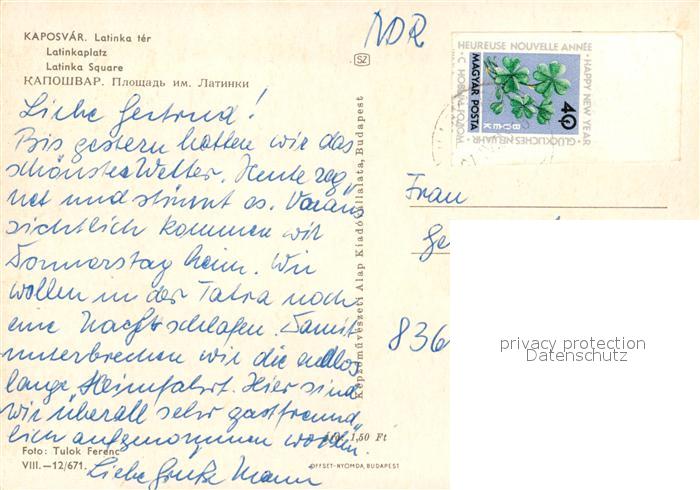 KAPOSVÁR. Latinka tér
Latinkaplatz
Latinka Square
КАПОШВАР. Площадь им. Латинки
NDR
SZ
HEUREUSE NOUVELLE ANNÉE
HAPPY NEW YEAR
GLÜCKLICHES NEUJAHR
С НОВЫМ ГОДОМ
MAGYAR POSTA
BUÉK
40
Liebe Gertrud!
Bis gestern hatten wir das
schönste Wetter. Heute reg„
net und stürmt es. Voraus„
sichtlich kommen wir
Donnerstag heim. Wir
wollen in der Tatra noch
eine Nacht schlafen. Damit
unterbrechen wir die endlos
lange Heimfahrt. Hier sind
wir überall sehr gastfreund„
lich aufgenommen worden.
Liebe Grüße
Frau
Ge
836
Képzőművészeti Alap Kiadóvállalata, Budapest
1,50 Ft
Foto: Tulok Ferenc
VIII.—12/671.
OFFSET-NYOMDA, BUDAPEST
privacy protection
Datenschutz